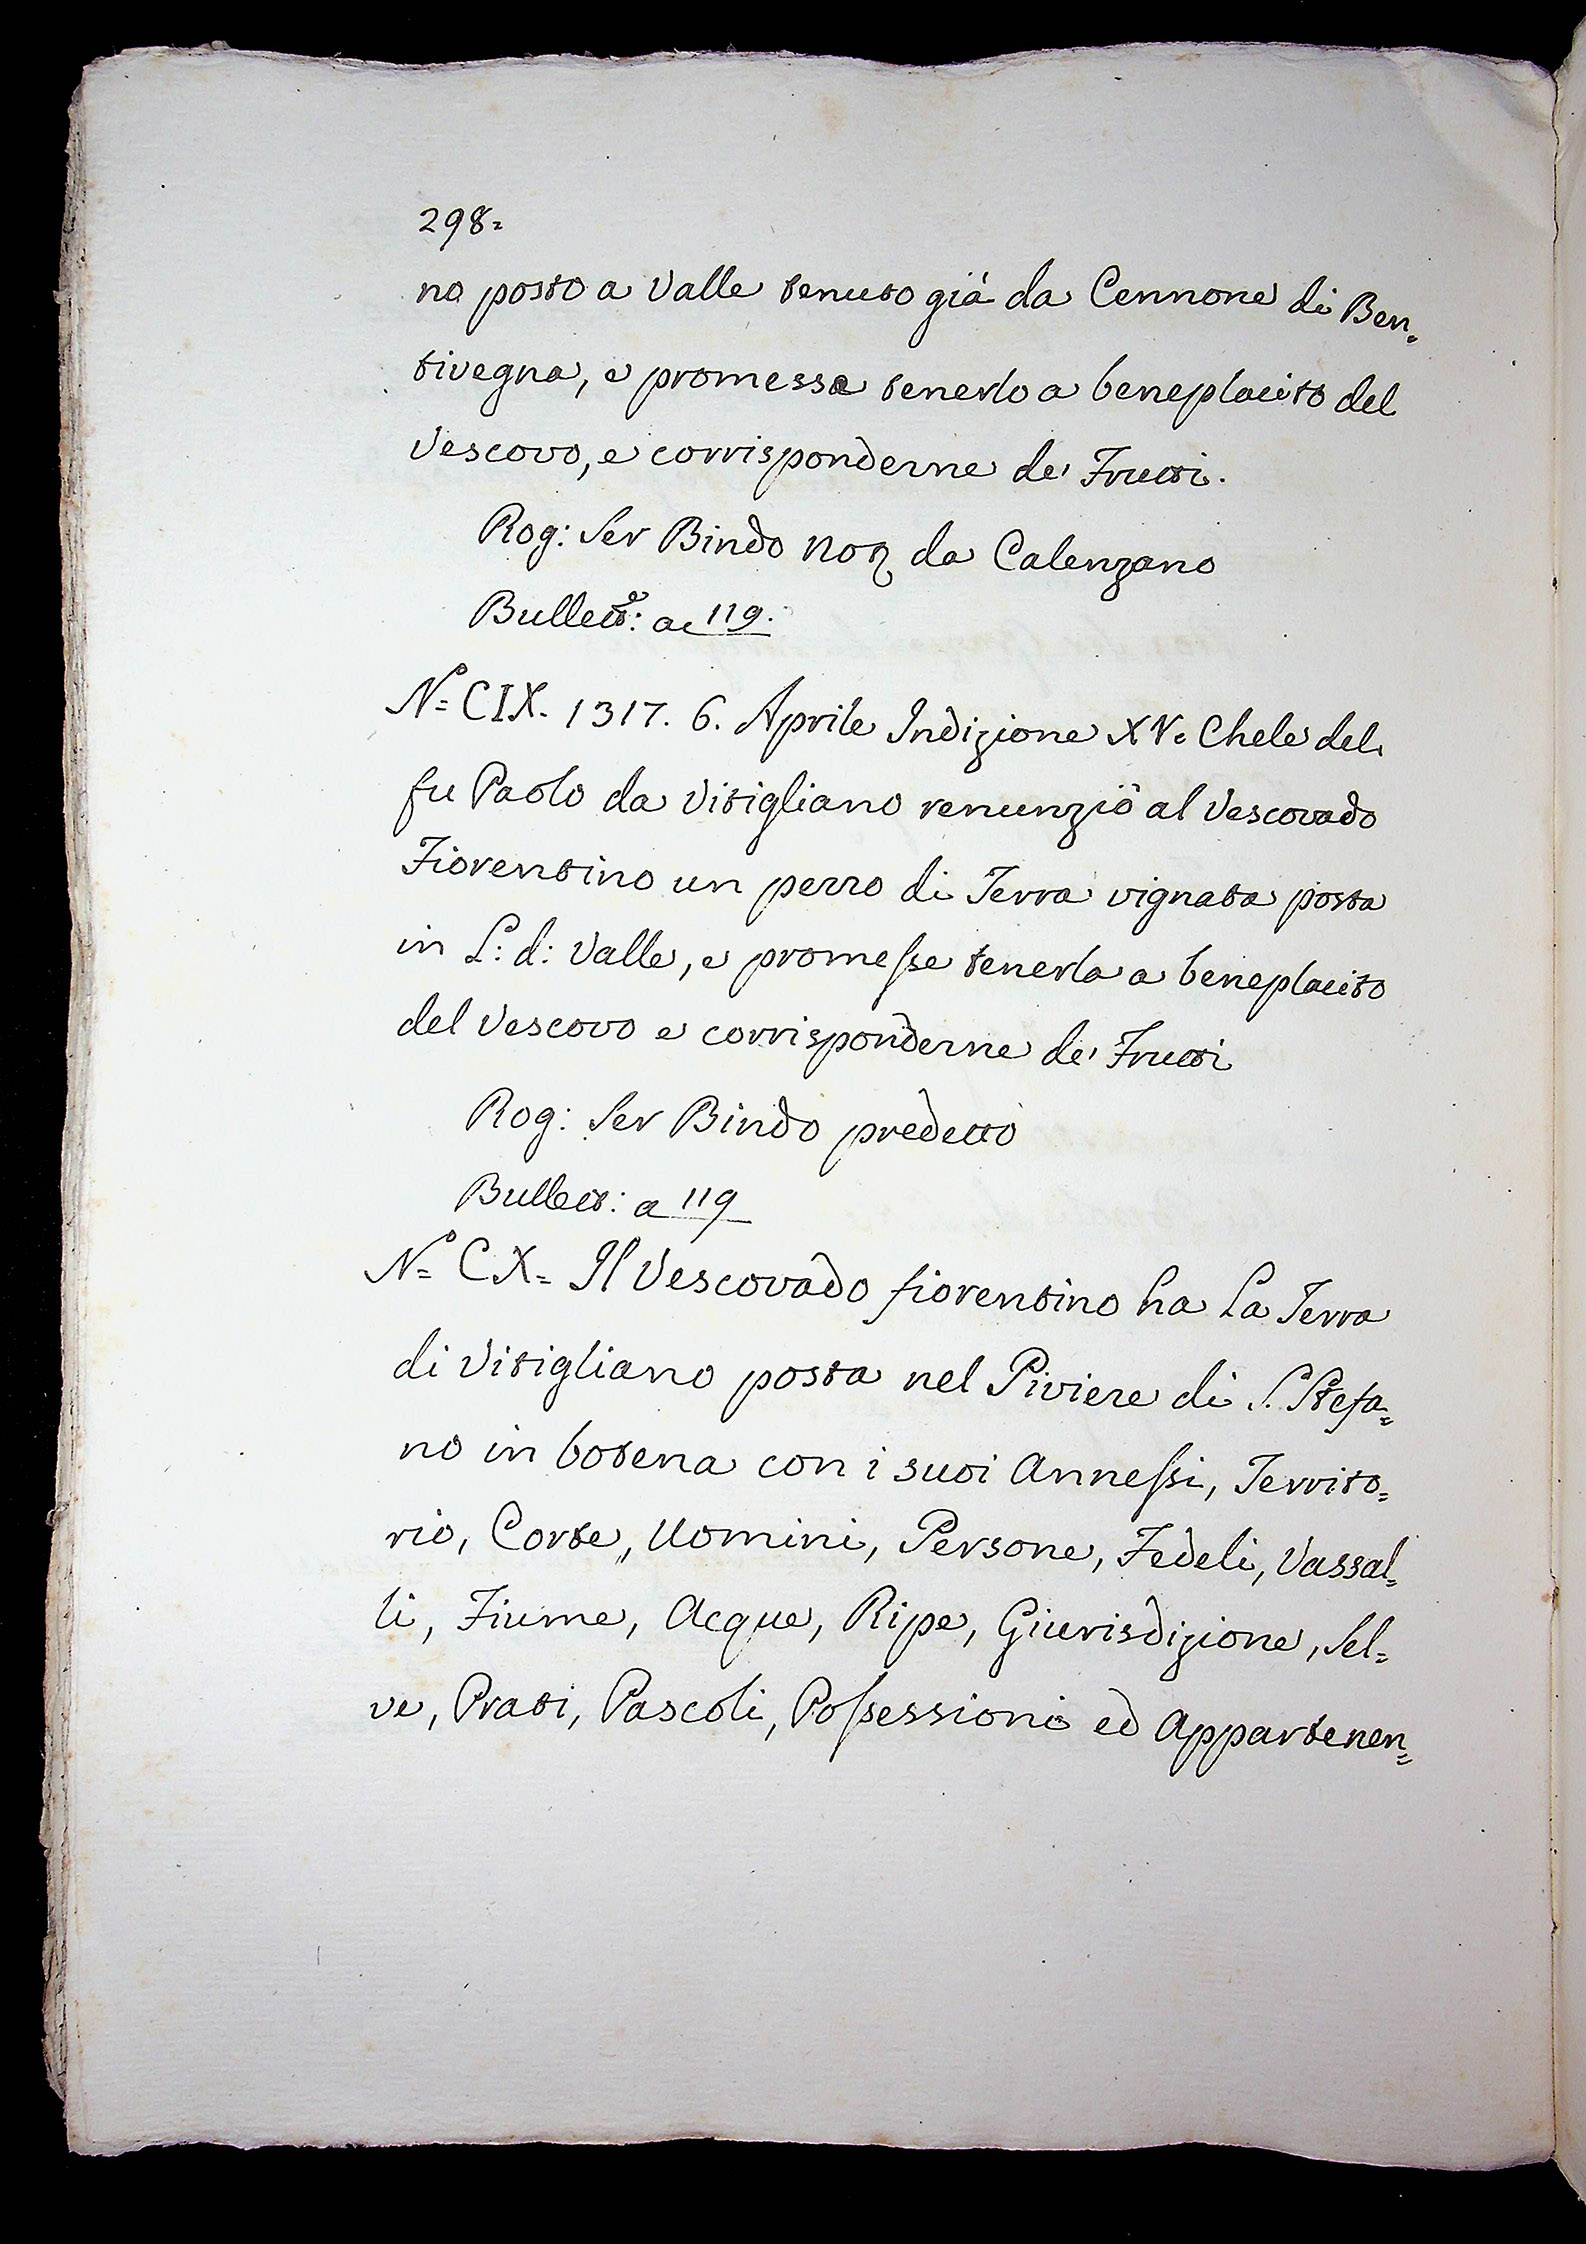 298=
no posto a Valle tenuto già da Cennone di Ben=
tivegna, e promesse tenerlo a beneplacito del
Vescovo, e corrisponderne de' Frutti.
Rog: Ser Bindo Noʒ da Calenzano
Bullett:ᵉ a 119.
N.º CIX. 1317. 6. Aprile Indizione XV. Chele del
fu Paolo da Vitigliano renunziò al Vescovado
Fiorentino un pezzo di Terra vignata posta
in L: d: Valle, e promesse tenerla a beneplacito
del Vescovo e corrisponderne de' Frutti
Rog: Ser Bindo predetto
Bullett: a 119
N.º CX= Il Vescovado fiorentino ha La Terra
di Vitigliano posta nel Piviere di S. Stefa=
no in botena con i suoi Annessi, Territo=
rio, Corte, Uomini, Persone, Fedeli, Vassal=
li, Fiume, Acque, Ripe, Giurisdizione, Sel=
ve, Prati, Pascoli, Possessioni ed Appartenen=